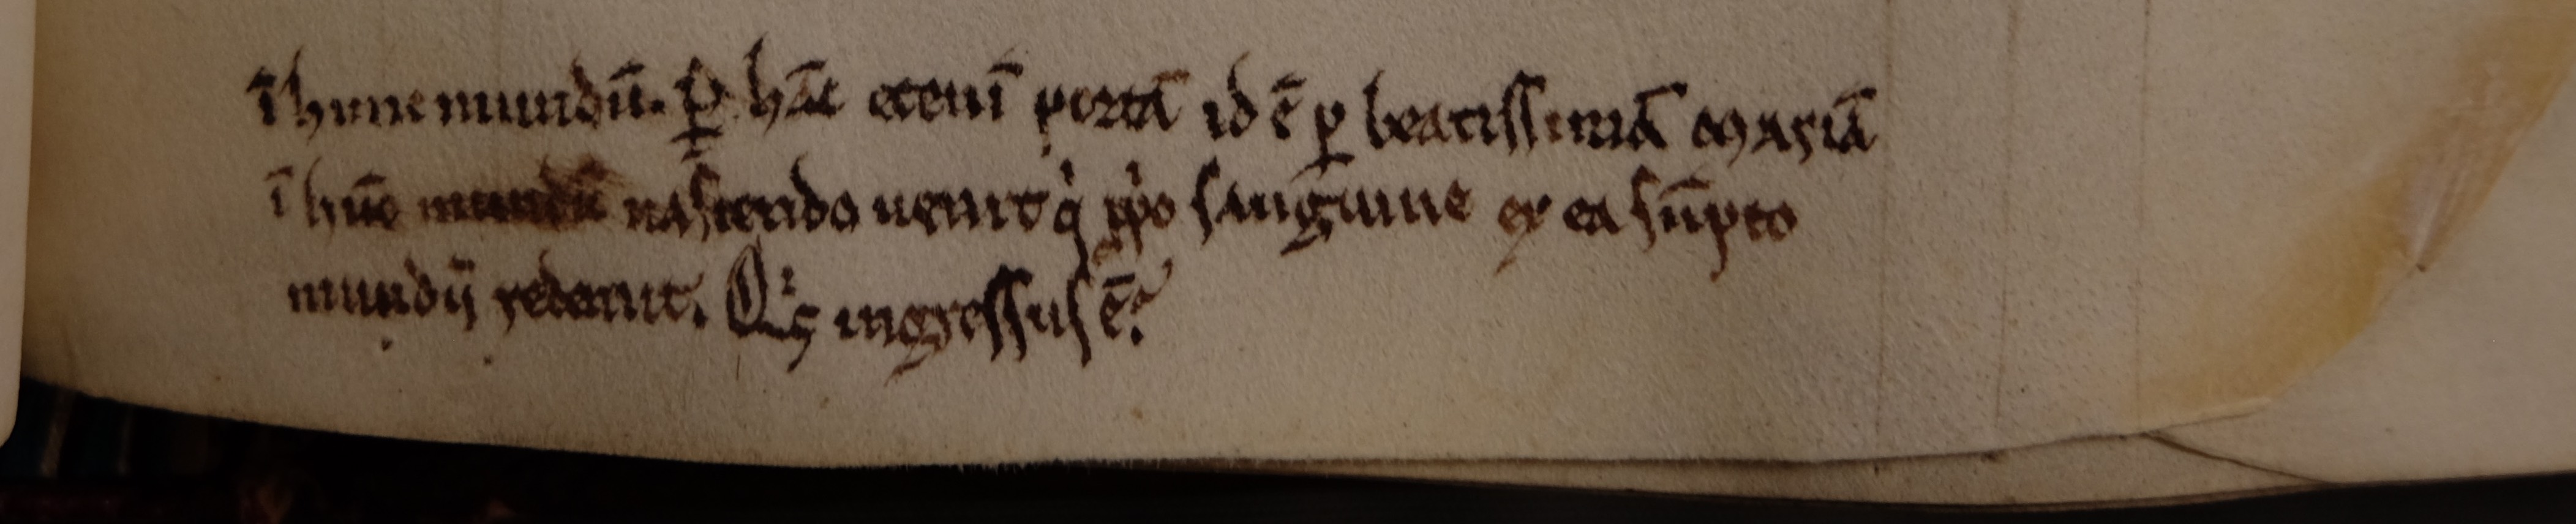 ī hunc mundū. ꝑ hāc etenī portā id ē ꝑ beatissimā mariā
ī hūc mundū nascendo uenit qͥ ꝓpͥo sanguine ex ea sūpto
mundū redemit. Qͥs ingressus ē?